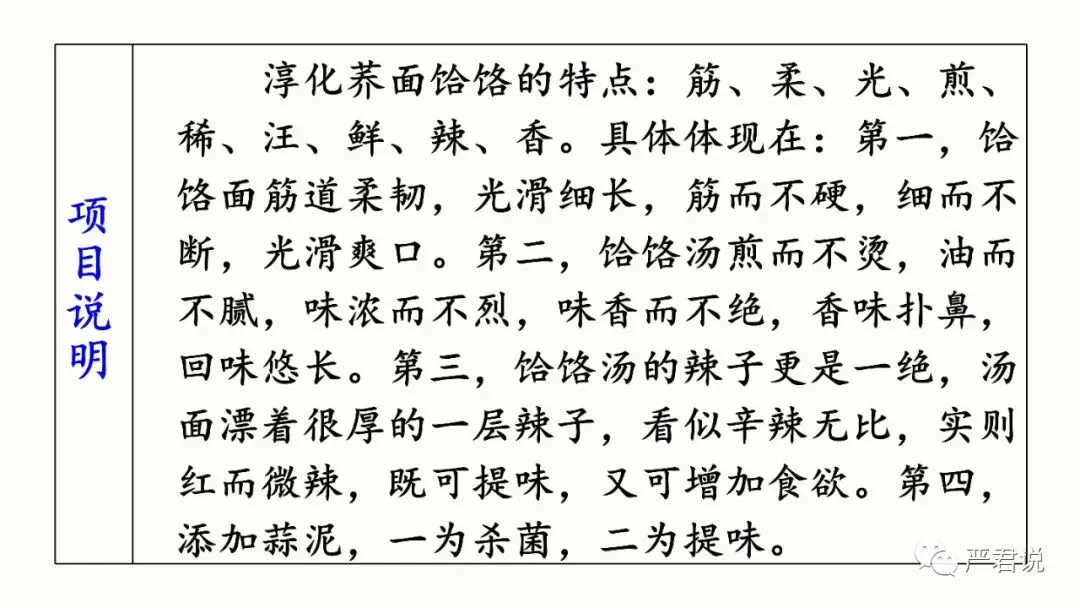 项目说明
淳化荞面饸饹的特点：筋、柔、光、煎、
稀、汪、鲜、辣、香。具体体现在：第一，饸
饹面筋道柔韧，光滑细长，筋而不硬，细而不
断，光滑爽口。第二，饸饹汤煎而不烫，油而
不腻，味浓而不烈，味香而不绝，香味扑鼻，
回味悠长。第三，饸饹汤的辣子更是一绝，汤
面漂着很厚的一层辣子，看似辛辣无比，实则
红而微辣，既可提味，又可增加食欲。第四，
添加蒜泥，一为杀菌，二为提味。
严君说